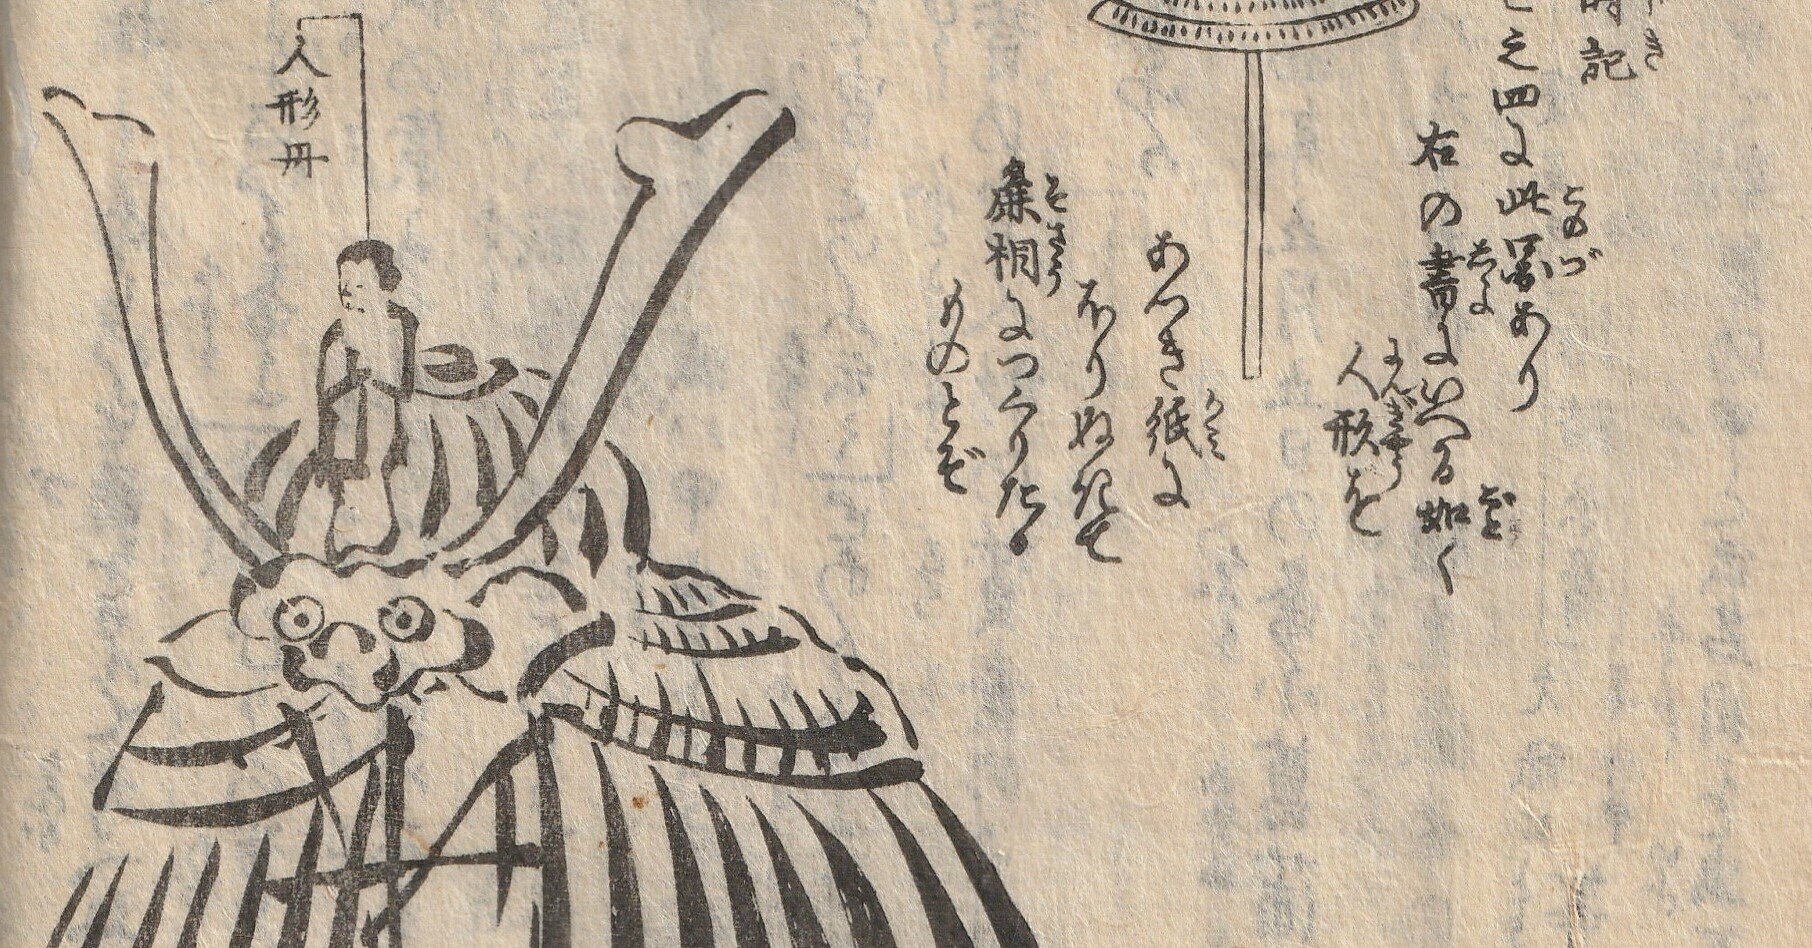 時記
之四に此図あり
右の書にいへる如く
人形を
あつき紙に
ほりぬきて
麁相につくりたる
ものとぞ
人形丹